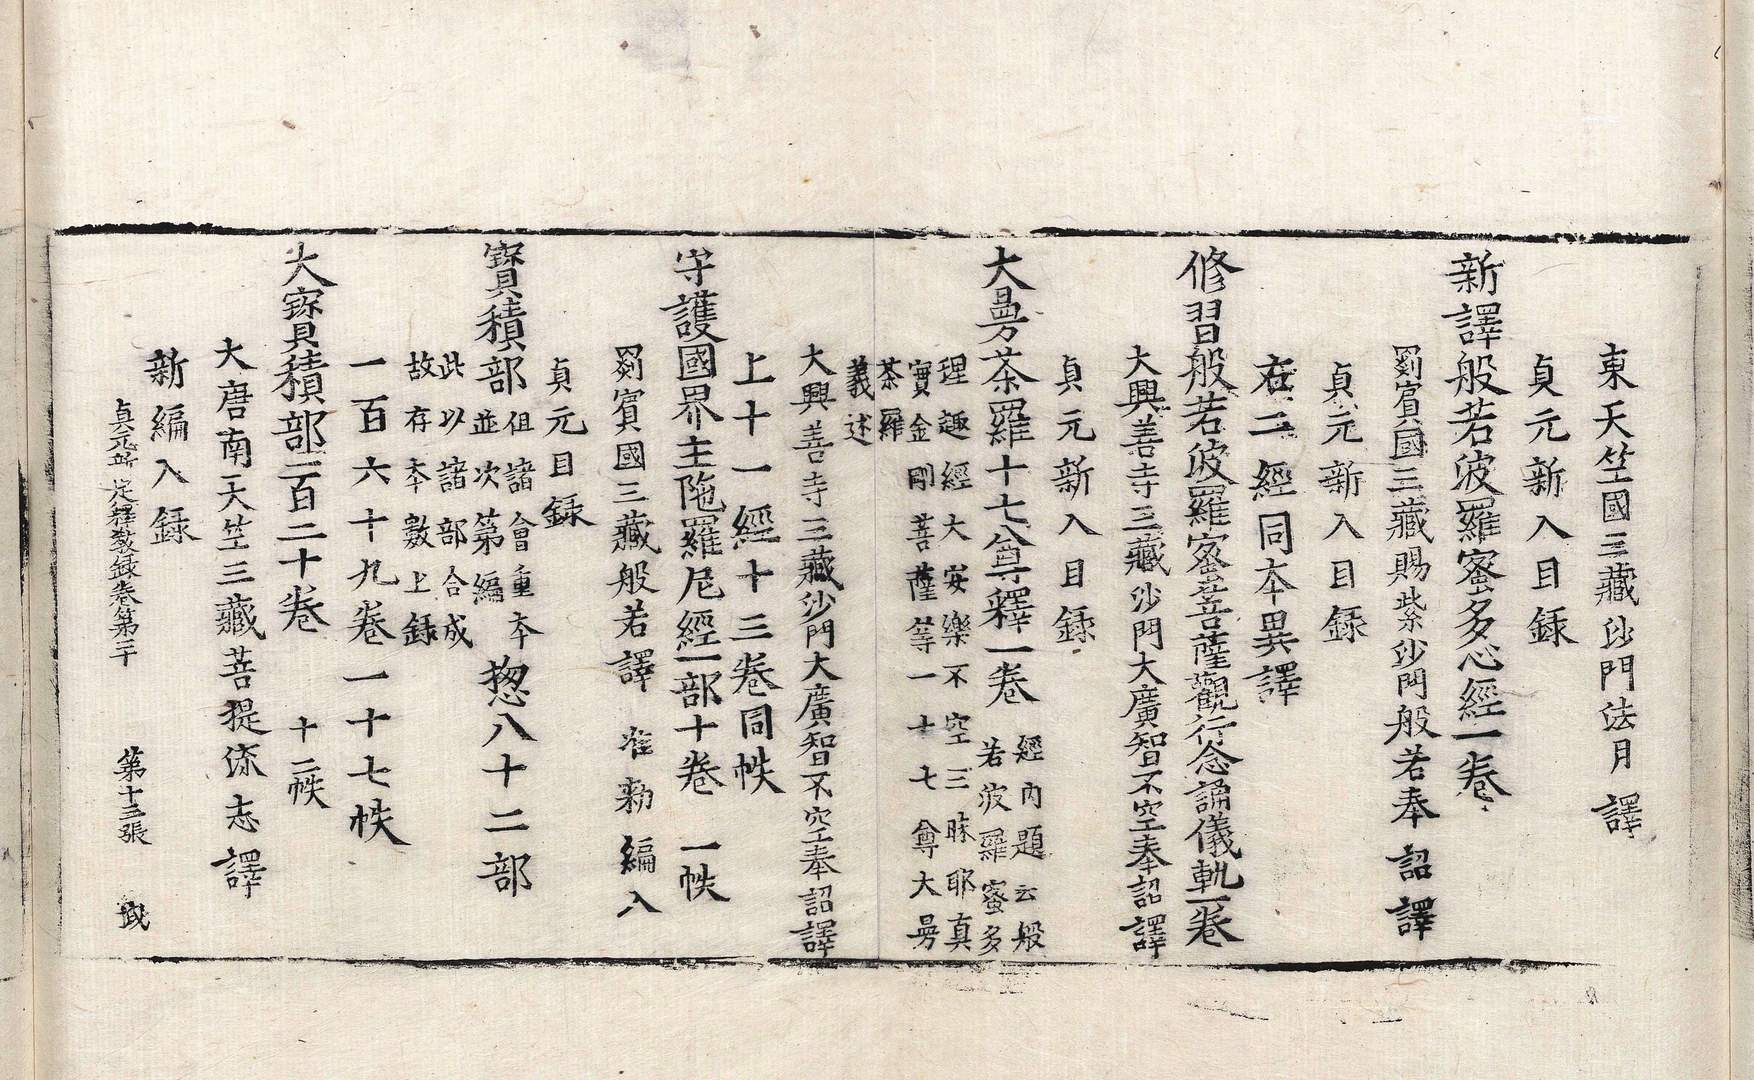 東天竺國三藏沙門法月譯
貞元新入目録
新譯般若波羅蜜多心經一卷
罽賓國三藏賜紫沙門般若奉詔譯
貞元新入目録
右二經同夲異譯
修習般若波羅蜜菩薩觀行念誦儀軌一卷
大興善寺三藏沙門大廣智不空奉詔譯
貞元新入目録
大曼荼羅十七尊釋一卷
經內題云般
若波羅蜜多
理趣經大安樂不空三昧耶真
實金剛菩薩等一十七尊大曼
荼羅
義述
大興善寺三藏沙門大廣智不空奉詔譯
上十一經十三卷同帙
守護國界主陁羅尼經一部十卷 一帙
罽賓國三藏般若譯 准勑編入
貞元目録
寶積部
但諸會重夲
並次第編
揔八十二部
此以諸部合成
故存夲數上録
一百六十九卷一十七帙
大寳積部一百二十卷 十二帙
大唐南天竺三藏菩提流志譯
新編入録
貞元新定釋教録卷第二十 第十三張